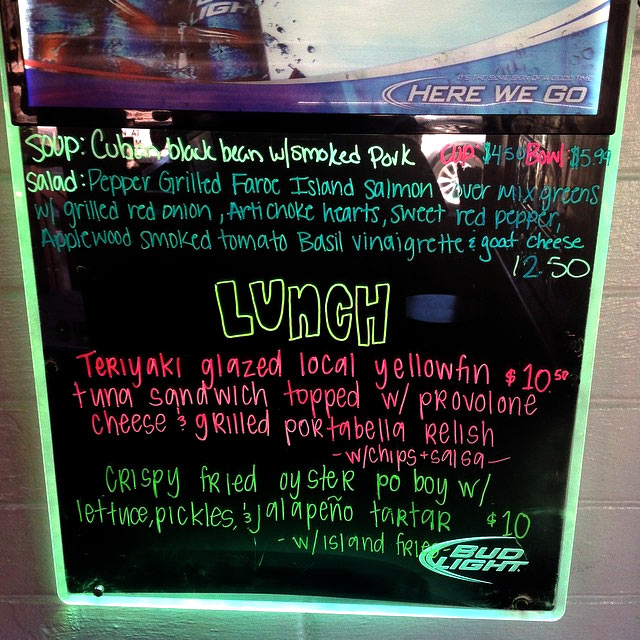 LIGHT
IT'S THE SURE SIGN OF A GOOD TIME
HERE WE GO
Soup: Cuban black bean w/smoked Pork CUP $4.50 Bowl $5.99
Salad: Pepper Grilled Faroe Island Salmon over mix greens
w/ grilled red onion, Artichoke hearts, sweet red pepper,
Applewood smoked tomato Basil vinaigrette & goat cheese
12.50
LUNCH
Teriyaki glazed local yellowfin $10.50
tuna sandwich topped w/ provolone
cheese & grilled portabella relish
- w/chips + salsa -
Crispy fried oyster po boy w/
lettuce, pickles, & jalapeño tartar $10
- w/island fries
BUD
LIGHT